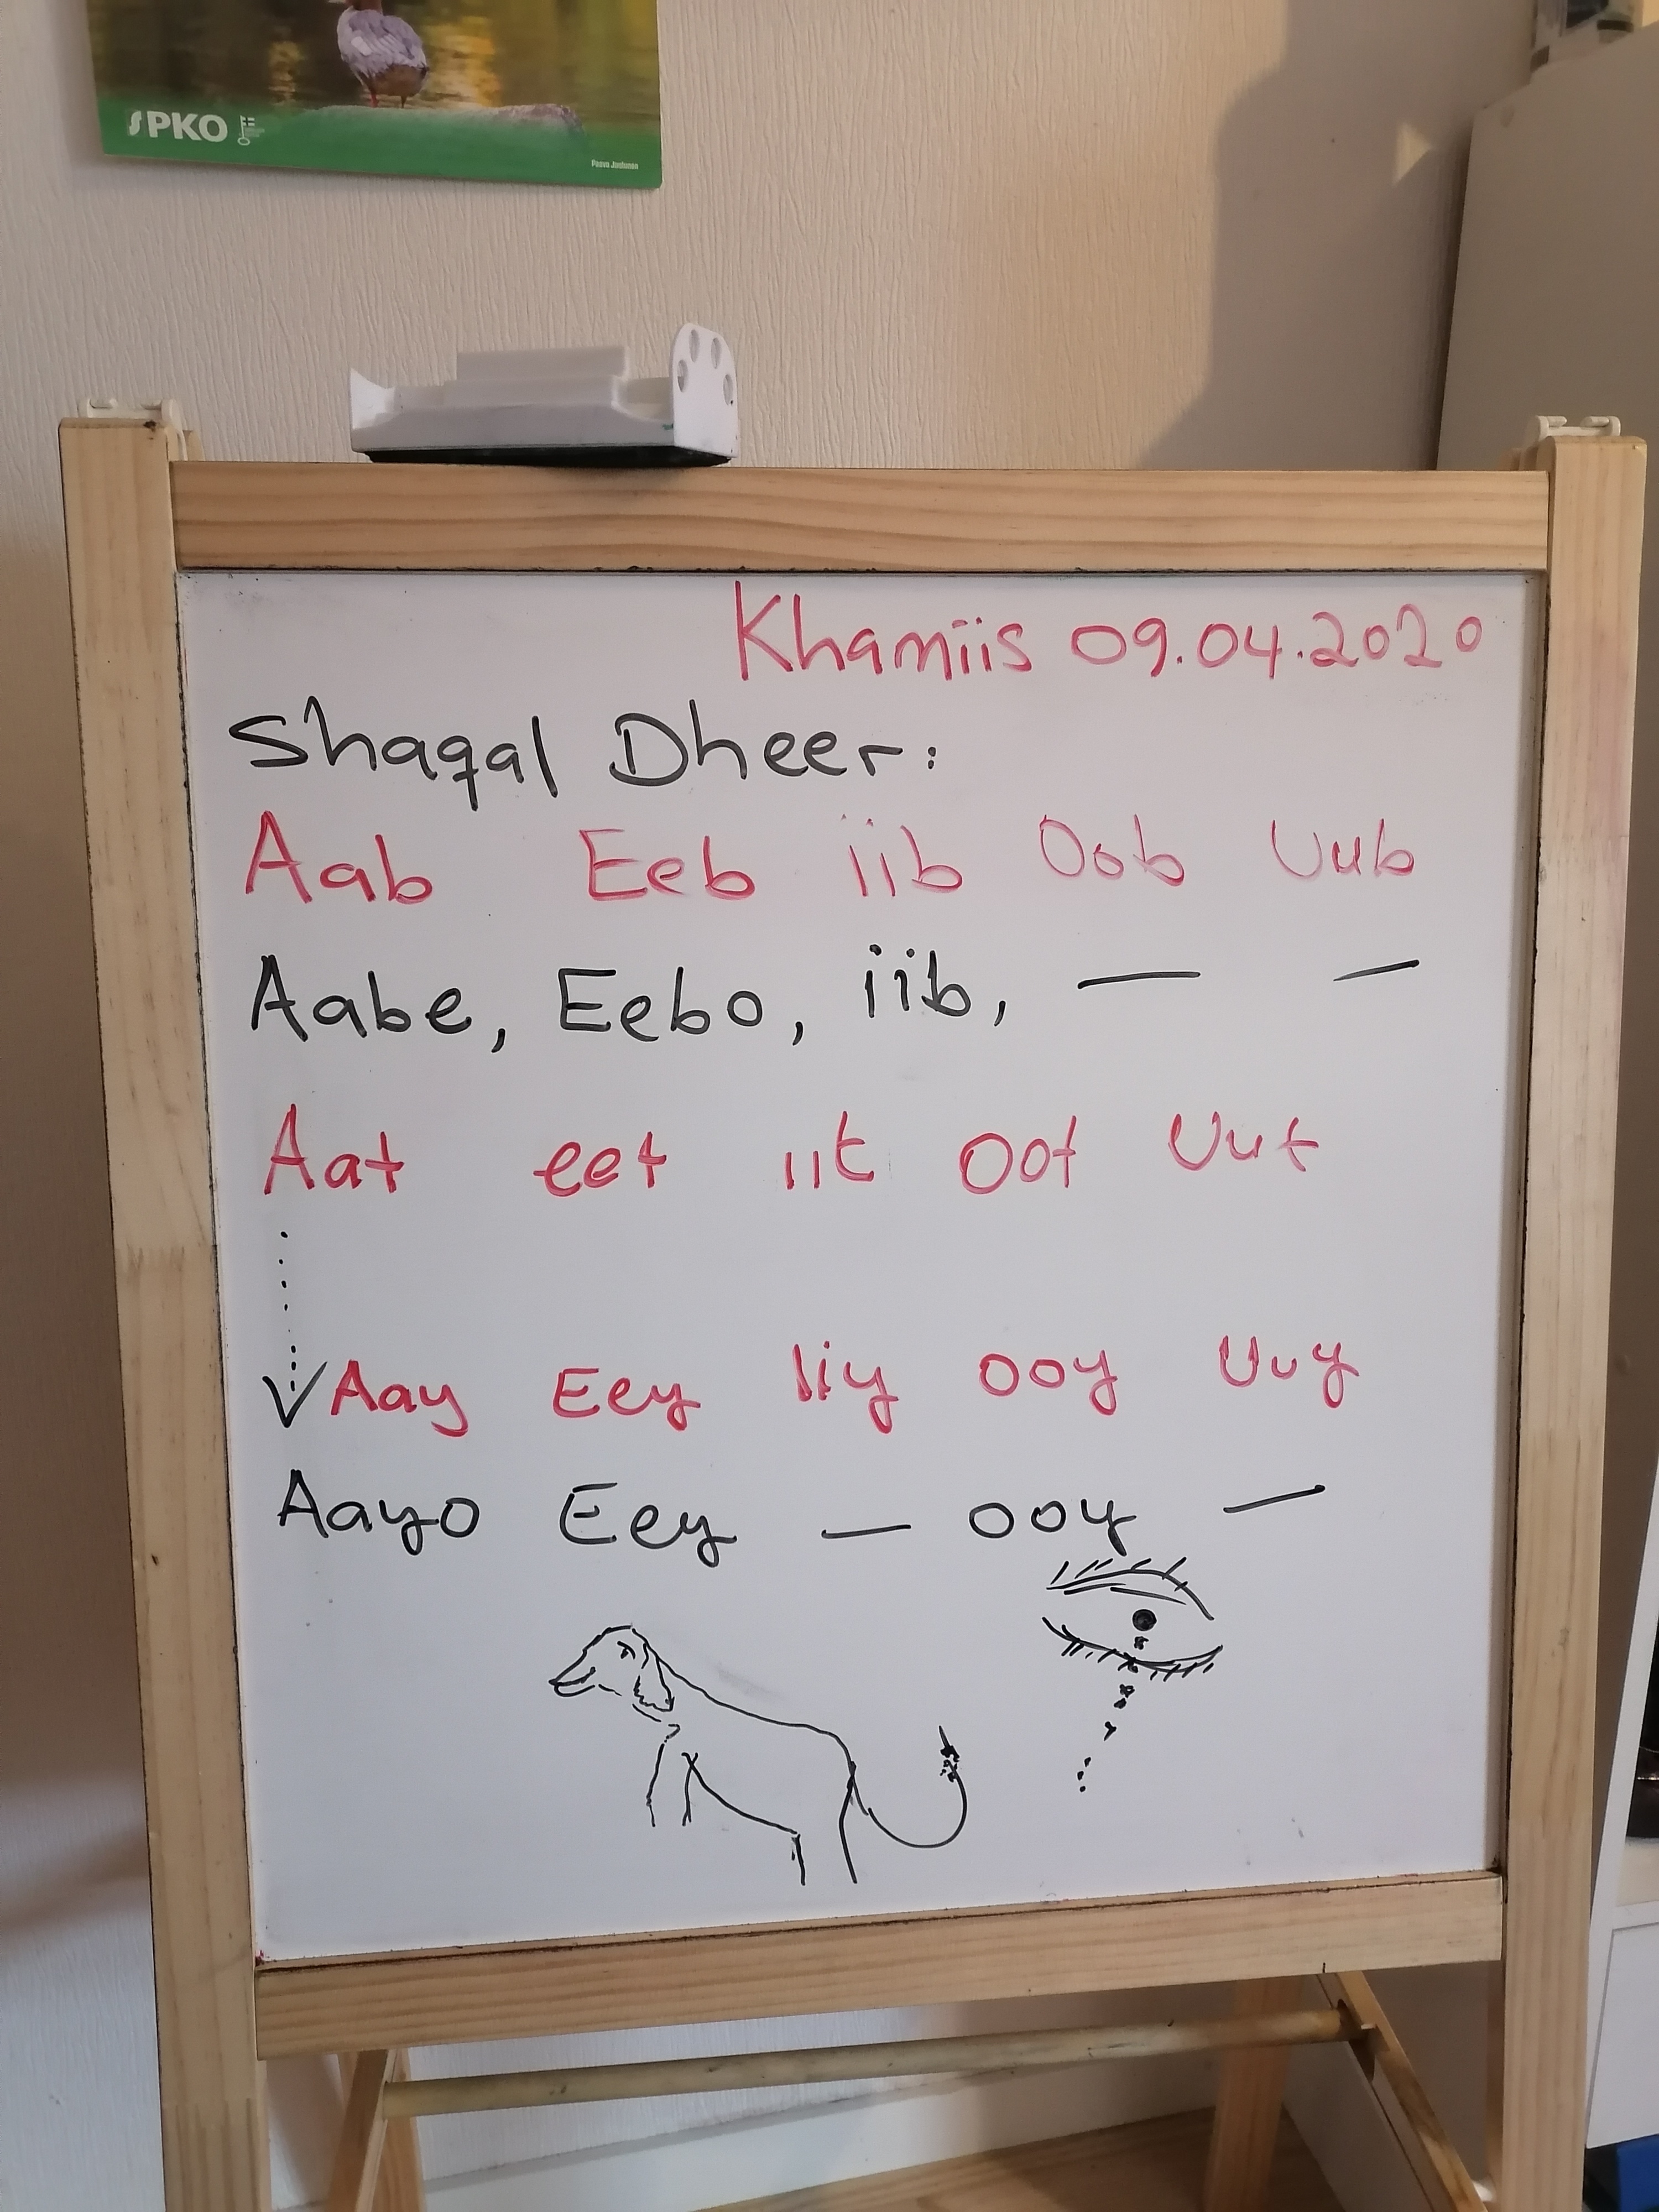 SPKO
Paavo Jantunen
Khamiis 09.04.2020
Shaqal Dheer:
Aab Eeb iib Oob Uub
Aabe, Eebo, iib, — —
Aat eet iit Oot Uut
Aay Eey Iiy ooy Uuy
Aayo Eey — ooy —